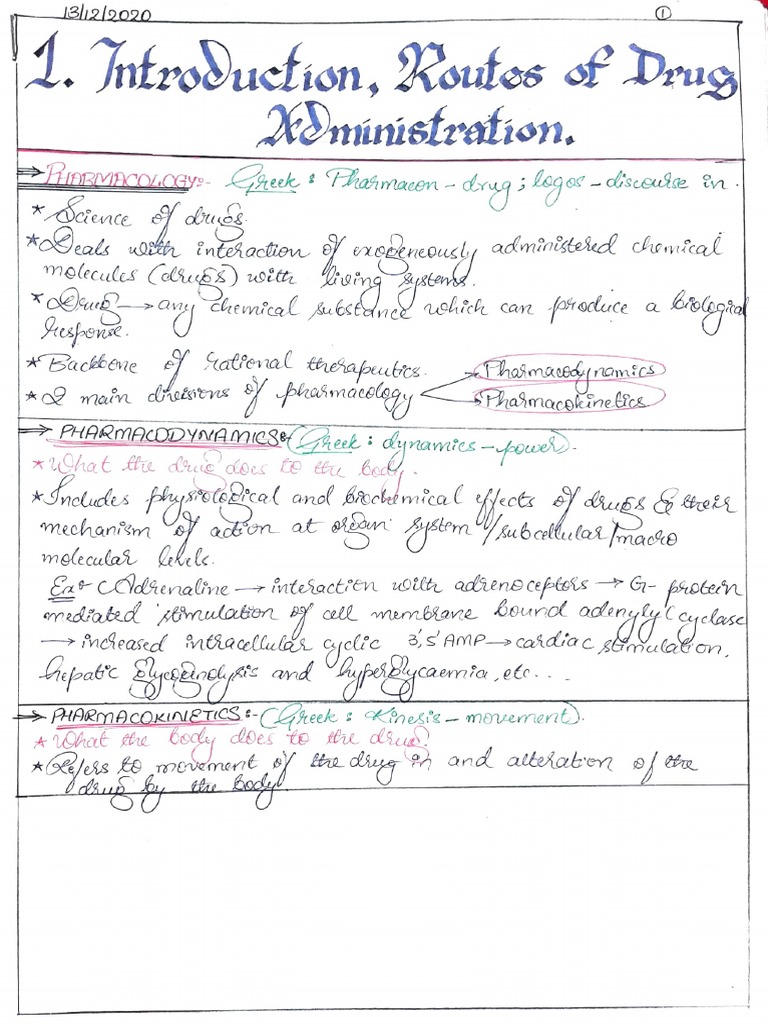 13/12/2020
①
1. Introduction, Routes of Drug
Administration.
⇒ PHARMACOLOGY:- Greek : Pharmacon - drug ; logos - discourse in .
* Science of drugs.
* Deals with interaction of exogeneously administered chemical
molecules (drugs) with living systems.
* Drug → any chemical substance which can produce a biological
response.
* Backbone of rational therapeutics.
Pharmacodynamics
* 2 main divisions of pharmacology
Pharmacokinetics
⇒ PHARMACODYNAMICS:- (Greek : dynamics - power).
* What the drug does to the body.
* Includes physiological and biochemical effects of drugs & their
mechanism of action at organ system / subcellular / macro
molecular levels.
Ex:- Adrenaline → interaction with adrenoceptors → G- protein
mediated stimulation of cell membrane bound adenylyl cyclase
→ increased intracellular cyclic 3',5' AMP → cardiac stimulation,
hepatic glycogenolysis and hyperglycaemia, etc....
⇒ PHARMACOKINETICS:- (Greek : Kinesis - movement).
* What the body does to the drug?
* Refers to movement of the drug in and alteration of the
drug by the body